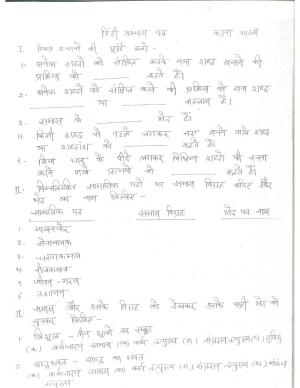 हिंदी अभ्यास पत्र कक्षा आठवीं
I. रिक्त स्थानों की पूर्ति करो -
1. अनेक शब्दों को संक्षिप्त करके नया शब्द बनाने की
प्रक्रिया को ______ कहते हैं।
2. अनेक शब्दों को संक्षिप्त करने की प्रक्रिया से बना शब्द
______ या ______ कहलाता है।
3. समास के ______ भेद हैं।
4. किसी शब्द से पहले लगकर नया बनाने वाले शब्द
या शब्दांश को ______ कहते हैं।
5. क्रिया धातु के पीछे लगकर विभिन्न शब्दों की रचना
करने वाले प्रत्ययों को ______ कहते हैं।
II. निम्नलिखित सामासिक पदों का समास विग्रह करिए और
भेद का नाम लिखिए-
सामासिक पद समास विग्रह भेद का नाम
1. माखनचोर
2. सेनानायक
3. चरणकमल
4. नीलकमल
5. जीवन-मरण
6.
III. समास और उसके विग्रह को देखकर उसके सही भेद को
चुनकर लिखिए-
1. त्रिशूल - तीन शूलों का समूह
(क) कर्मधारय समास (ख) कर्म तत्पुरुष (ग) संप्रदान तत्पुरुष (घ) द्विगु
2.
(क) कर्मधारय समास (ख) कर्म तत्पुरुष (ग) संप्रदान तत्पुरुष (घ) संबंध
तत्पुरुष